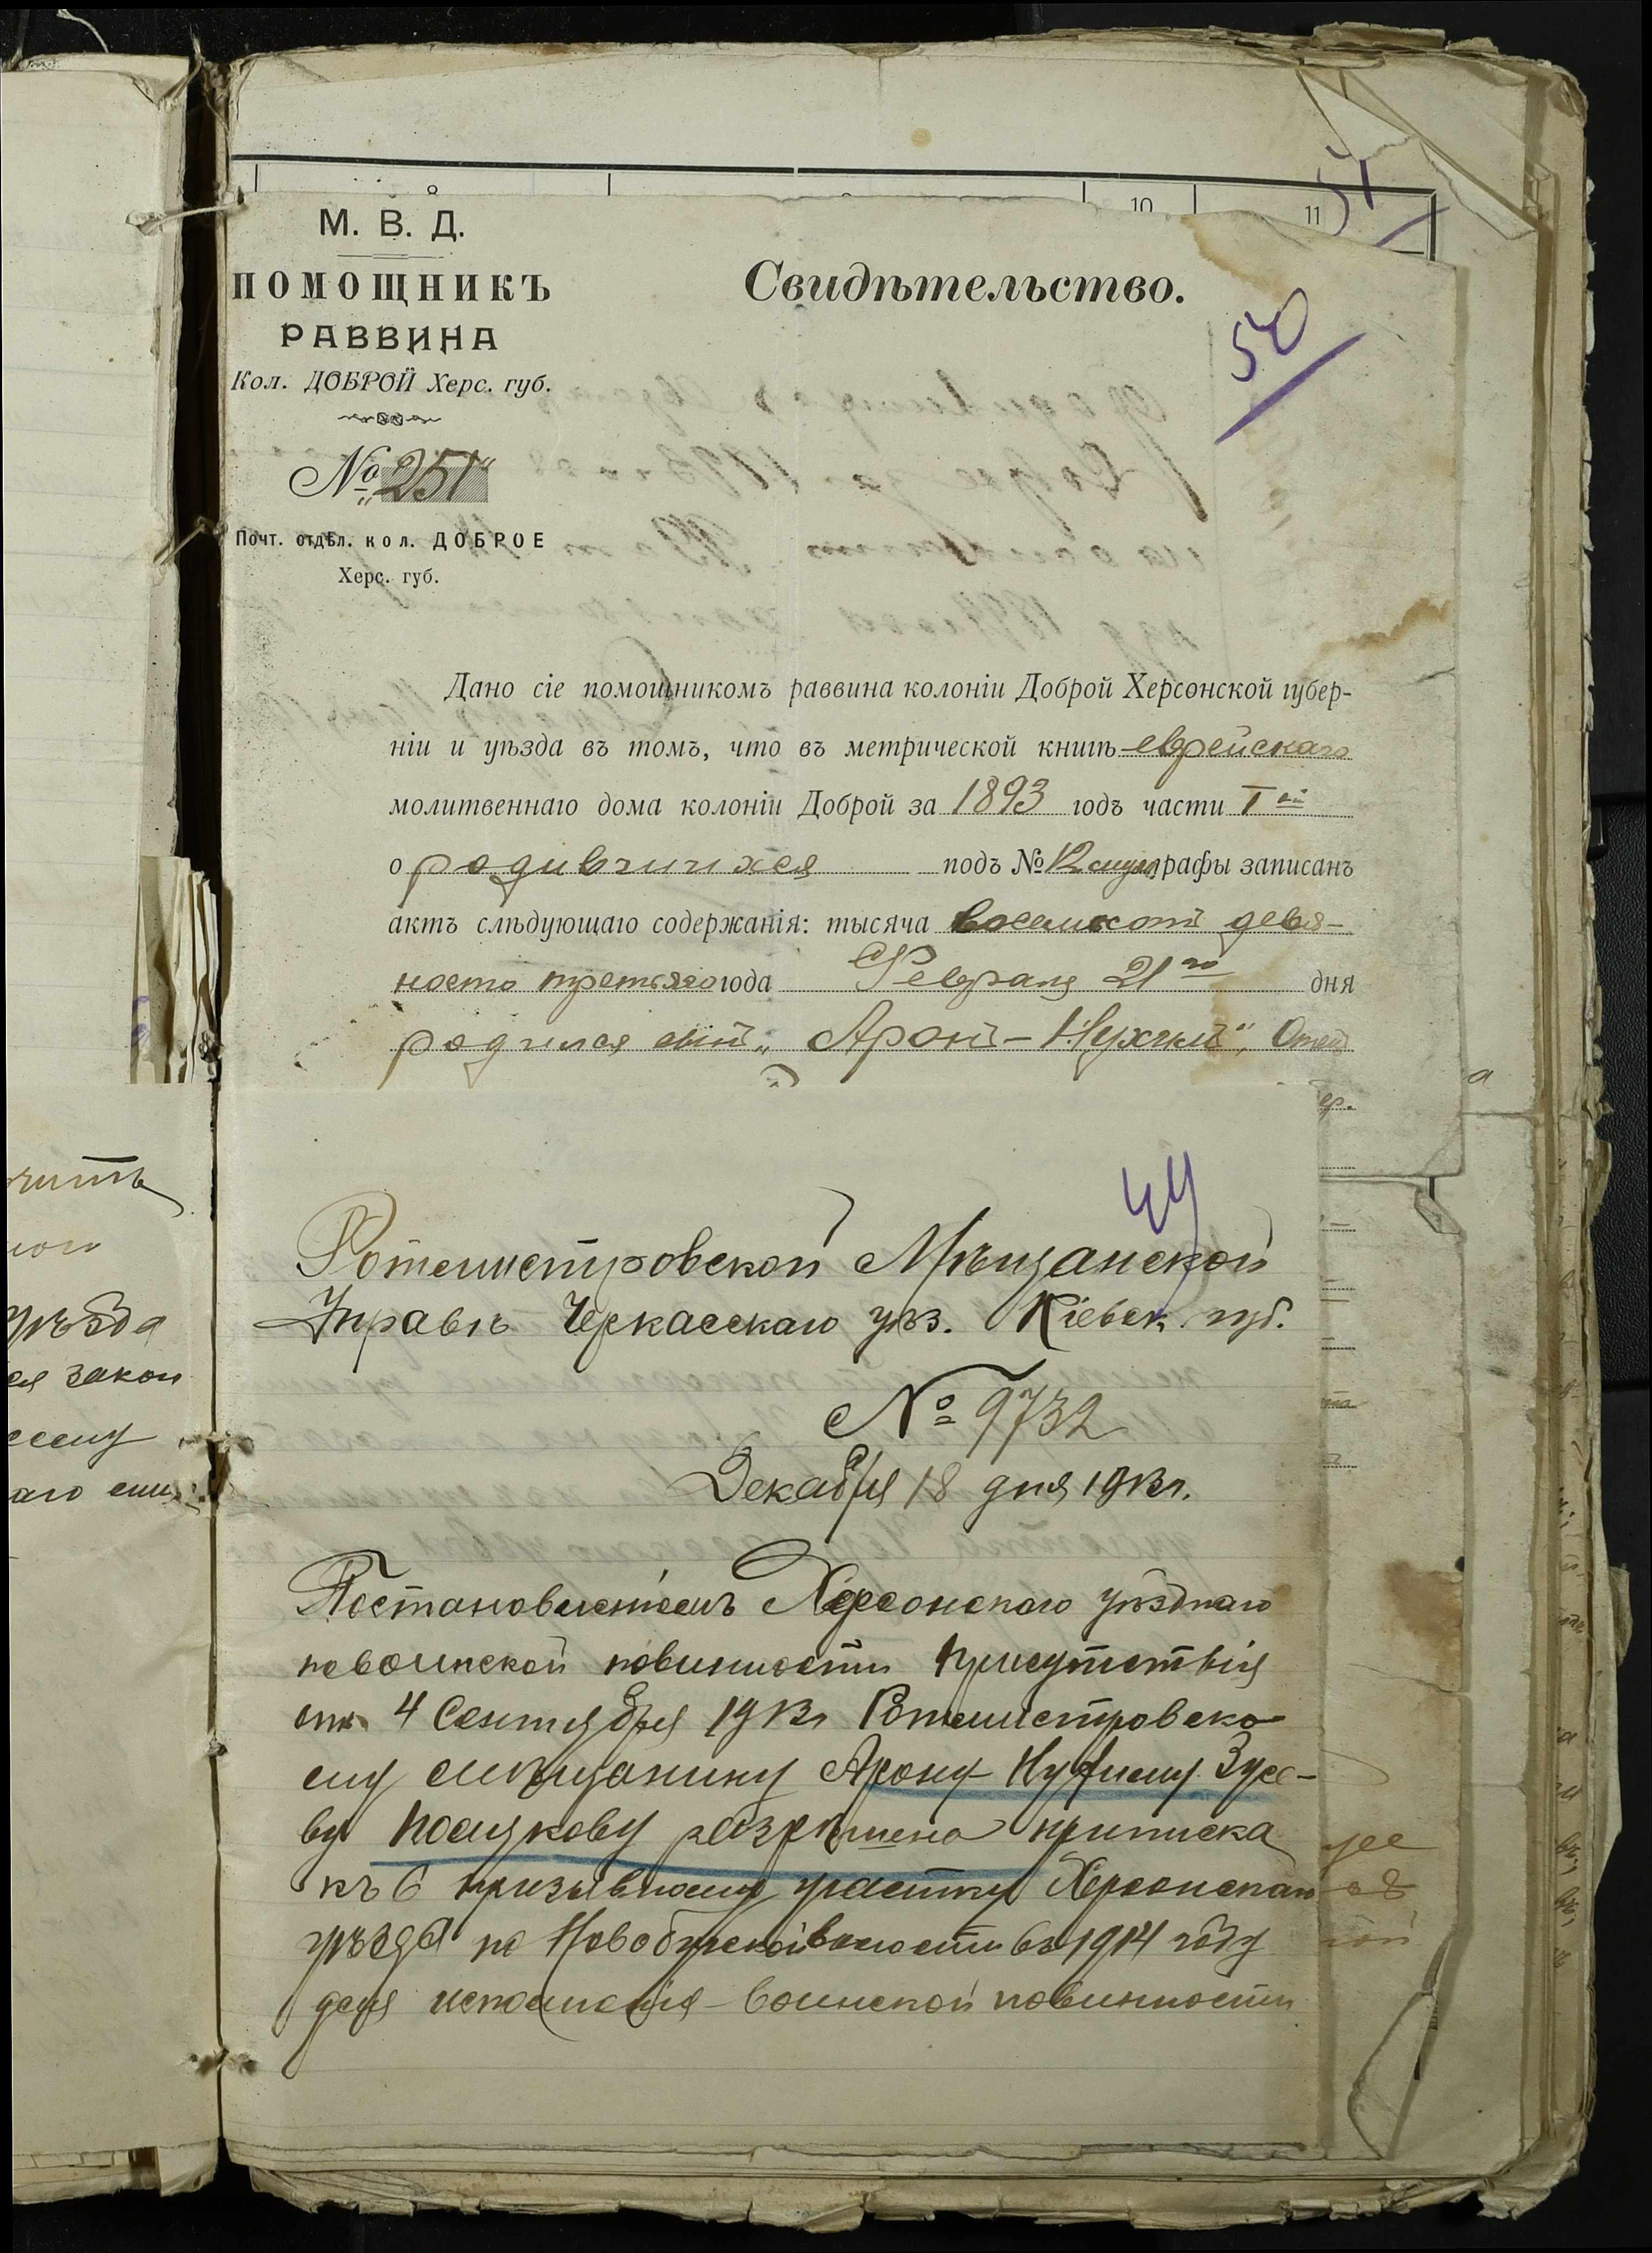 10
11
51
М. В. Д.
ПОМОЩНИКЪ
РАВВИНА
Кол. ДОБРОЙ Херс. губ.
№ „251“
Почт. отдѣл. кол. ДОБРОЕ
Херс. губ.
Свидѣтельство.
50
Дано сіе помощникомъ раввина колоніи Доброй Херсонской губер-
ніи и уѣзда въ томъ, что въ метрической книгѣ еврейскаго
молитвеннаго дома колоніи Доброй за 1893 годъ части I ой
о родившихся подъ № 12 муж. графы записанъ
актъ слѣдующаго содержанія: тысяча восемьсотъ девя-
носто третьяго года Февраля 21 го дня
родился сынъ „Аронъ-Нухимъ“, Отецъ
49
Ротмистровской Мѣщанской
Управѣ Черкасскаго уѣз. Кіевск. губ.
№ 9732
Декабря 18 дня 1913 г.
Постановленіемъ Херсонскаго уѣзднаго
по воинской повинности Присутствія
отъ 4 Сентября 1913 г. Ротмистровско-
му мѣщанину Арону-Нухиму Зусе-
ву Посяткову разрѣшена приписка
къ 6 призывному участку Херсонскаго
уѣзда по Новобугской волости въ 1914 году
для исполненія воинской повинности
уѣзда
ся закон